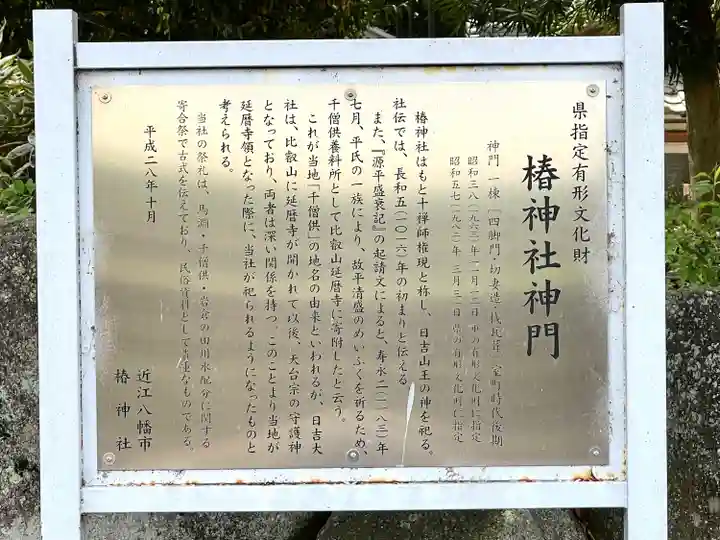 県指定有形文化財
椿神社神門
神門 一棟「四脚門・切妻造・桟瓦葺」室町時代後期
昭和三八(一九六三)年一二月一二日 市の有形文化財に指定
昭和五七(一九八二)年 三月三一日 県の有形文化財に指定
椿神社はもと十禅師権現と称し、日吉山王の神を祀る。
社伝では、長和五(一〇一六)年の初まりと伝える
また、『源平盛衰記』の起請文によると、寿永二(一一八三)年
七月、平氏の一族により、故平清盛のめいふくを祈るため、
千僧供養料所として比叡山延暦寺に寄附したと云う。
これが当地「千僧供」の地名の由来といわれるが、日吉大
社は、比叡山に延暦寺が開かれて以後、天台宗の守護神
となっており、両者は深い関係を持つ。このことより当地が
延暦寺領となった際に、当社が祀られるようになったものと
考えられる。
当社の祭礼は、馬淵・千僧供・岩倉の田川水配分に関する
寄合祭で古式を伝えており、民俗資料として貴重なものである。
平成二八年十月
近江八幡市
椿神社